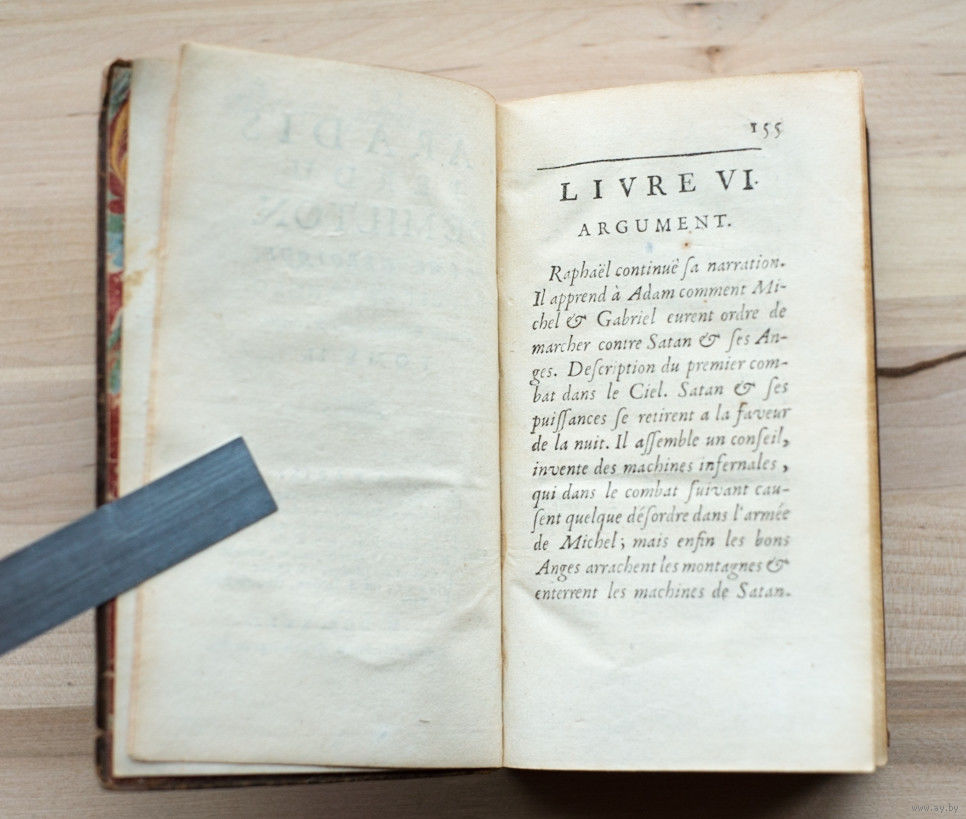 155
LIVRE VI.
ARGUMENT.
Raphaël continuë ſa narration.
Il apprend à Adam comment Mi-
chel & Gabriel eurent ordre de
marcher contre Satan & ſes An-
ges. Deſcription du premier com-
bat dans le Ciel. Satan & ſes
puiſſances ſe retirent a la faveur
de la nuit. Il aſſemble un conſeil,
invente des machines infernales,
qui dans le combat ſuivant cau-
ſent quelque déſordre dans l'armée
de Michel; mais enfin les bons
Anges arrachent les montagnes &
enterrent les machines de Satan.
www.ay.by